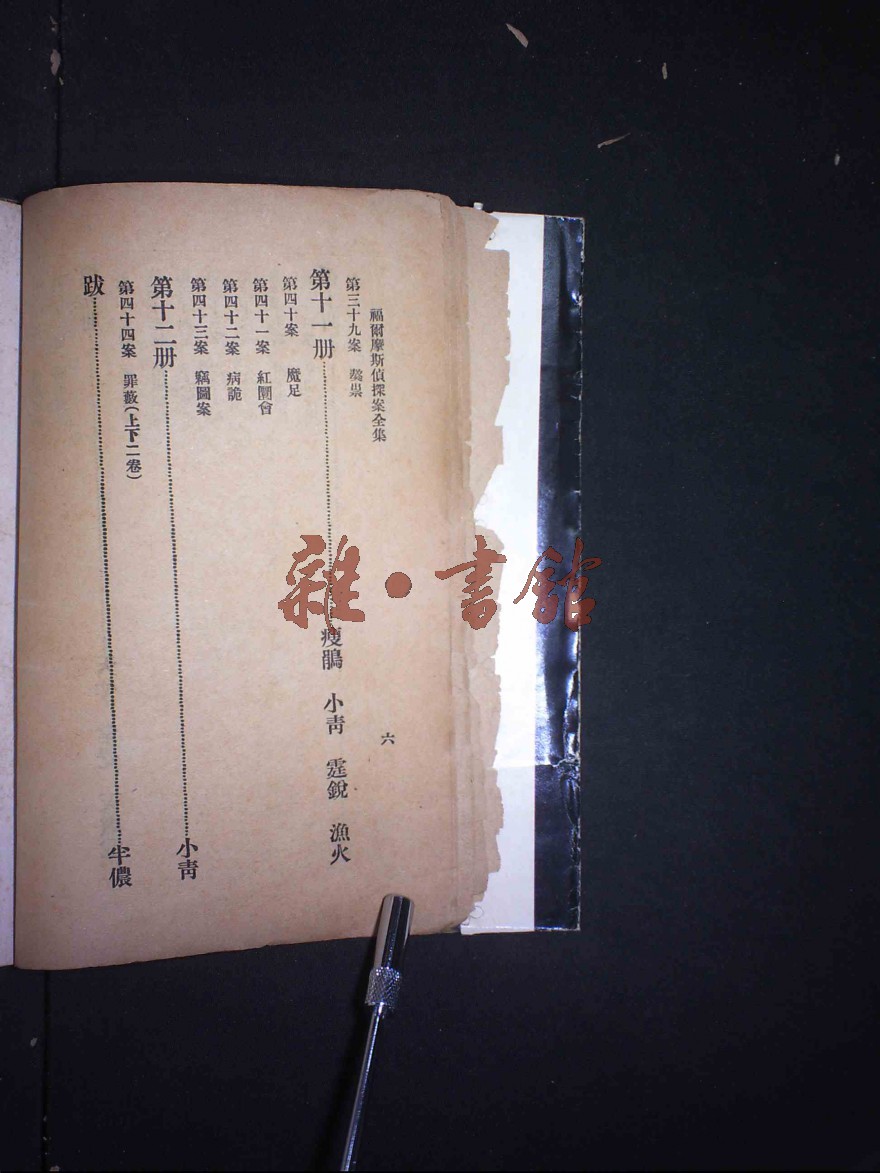 福爾摩斯偵探案全集
六
第三十九案 獒祟
第十一册 瘦鵑 小青 霆銳 漁火
第四十案 魔足
第四十一案 紅圜會
第四十二案 病詭
第四十三案 竊圖案
第十二册 小青
第四十四案 罪藪(上下二卷)
跋 半儂
雜·書館